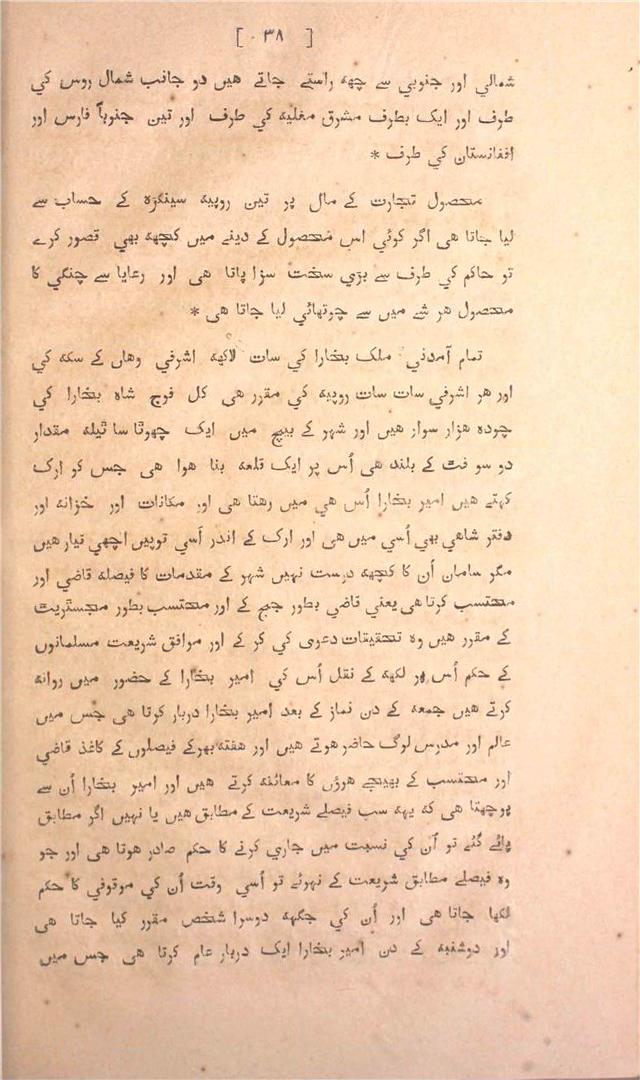 [ ۳۸ ]
شمالي اور جنوبي سے چهه راستے جاتے هيں دو جانب شمال روس کي
طرف اور ايک بطرف مشرق مغليه کي طرف اور تين جنوباً فارس اور
افغانستان کي طرف *
محصول تجارت کے مال پر تين روپيه سينکڙه کے حساب سے
ليا جاتا هی اگر کوئي اس محصول کے دينے ميں کچهه بهي قصور کرے
تو حاکم کي طرف سے بڙي سخت سزا پاتا هی اور رعايا سے چنگي کا
محصول هر شے ميں سے چوتهائي ليا جاتا هی *
تمام آمدني ملک بخارا کي سات لاکهه اشرفي وهاں کے سکه کي
اور هر اشرفي سات سات روپيه کي مقرر هی کل فوج شاه بخارا کي
چوده هزار سوار هيں اور شهر کے بيچ ميں ايک چهوٹا سا ٹيله مقدار
دو سو فٹ کے بلند هی اُس پر ايک قلعه بنا هوا هی جس کو ارک
کهتے هيں امير بخارا اُس هي ميں رهتا هی اور مکانات اور خزانه اور
دفتر شاهي بهي اُسي ميں هی اور ارک کے اندر اَسي توپيں اچهي تيار هيں
مگر سامان اُن کا کچهه درست نهيں شهر کے مقدمات کا فيصله قاضي اور
محتسب کرتا هی يعني قاضي بطور جج کے اور محتسب بطور مجسٹريٹ
کے مقرر هيں وه تحقيقات دعوی کي کر کے اور موافق شريعت مسلمانوں
کے حکم اُس پر لکهه کے نقل اُس کي امير بخارا کے حضور ميں روانه
کرتے هيں جمعه کے دن نماز کے بعد امير بخارا دربار کرتا هی جس ميں
عالم اور مدرس لوگ حاضر هوتے هيں اور هفته بهر کے فيصلوں کے کاغذ قاضي
اور محتسب کے بهيجے هوؤں کا معائنه کرتے هيں اور امير بخارا اُن سے
پوچهتا هی که يهه سب فيصلے شريعت کے مطابق هيں يا نهيں اگر مطابق
پائے گئے تو اُن کي نسبت ميں جاري کرنے کا حکم صادر هوتا هی اور جو
وه فيصلے مطابق شريعت کے نهوئے تو اُسي وقت اُن کي موقوفي کا حکم
لکها جاتا هی اور اُن کي جگهه دوسرا شخص مقرر کيا جاتا هی
اور دوشنبه کے دن امير بخارا ايک دربار عام کرتا هی جس ميں